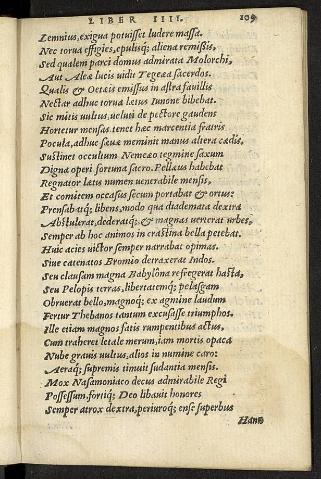 LIBER IIII. 109
Lemnius, exigua potuisset ludere massa.
Nec torua effigies, epulisq; aliena remissis,
Sed qualem parci domus admirata Molorchi,
Aut Aleæ lucis uidit Tegeæa sacerdos.
Qualis & Oetæis emissus in astra fauillis
Nectar adhuc torua lætus Iunone bibebat.
Sic mitis uultus, ueluti de pectore gaudens
Hortetur mensas. tenet hæc marcentia fratris
Pocula, adhuc sæuæ meminit manus altera cædis,
Sustinet occultum Nemeæo tegmine saxum
Digna operi fortuna sacro. Pellæus habebat
Regnator lætus numen uenerabile mensis,
Et comitem occasus secum portabat & ortus:
Prensabatq; libens, modo qua diademata dextra
Abstulerat, dederatq; & magnas uenerat urbes,
Semper ab hoc animos in crastina bella petebat.
Huic acies uictor semper narrabat opimas.
Siue catenatos Bromio detraxerat Indos.
Seu clausam magna Babylona refregerat hasta,
Seu Pelopis terras, libertatemq; pelasgam
Obruerat bello, magnoq; ex agmine laudum
Fertur Thebanos tantum excusasse triumphos.
Ille etiam magnos fatis rumpentibus actus,
Cum traheret letale merum, iam mortis opaca
Nube grauis uultus, alios in numine caro:
Aeraq; supremis timuit sudantia mensis.
Mox Nasamoniaco decus admirabile Regi
Possessum, fortiq; Deo libauit honores
Semper atrox dextra, periuroq; ense superbus